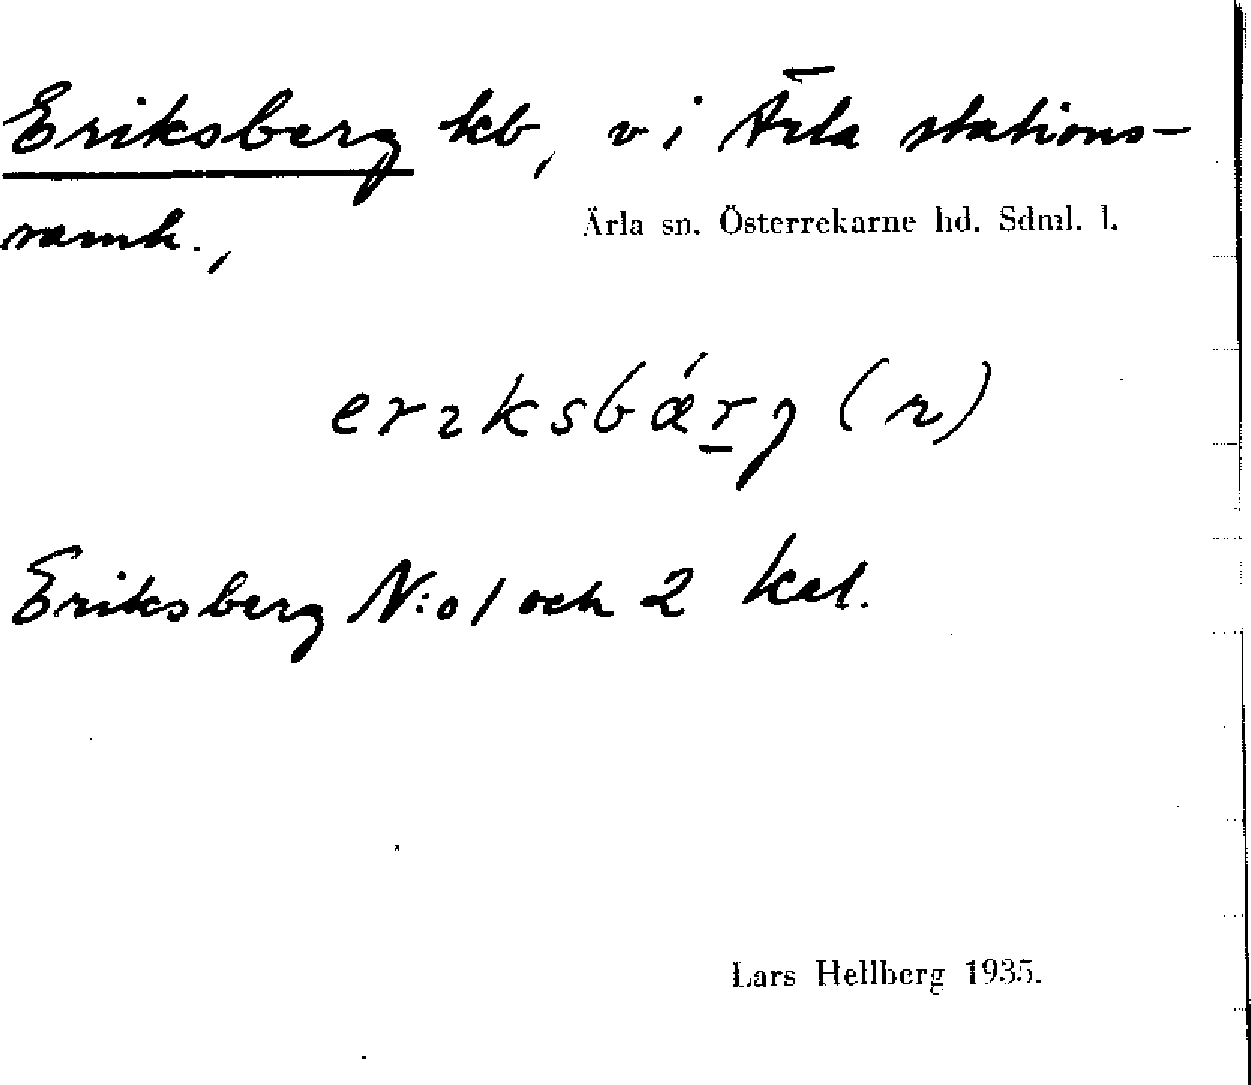 Eriksberg kb, v i Ärla stations-
samh.,
Ärla sn. Österrekarne hd. Sdml. l.
erıksbǽrg (n)
Eriksberg N:o 1 och 2 kat.
Lars Hellberg 1935.